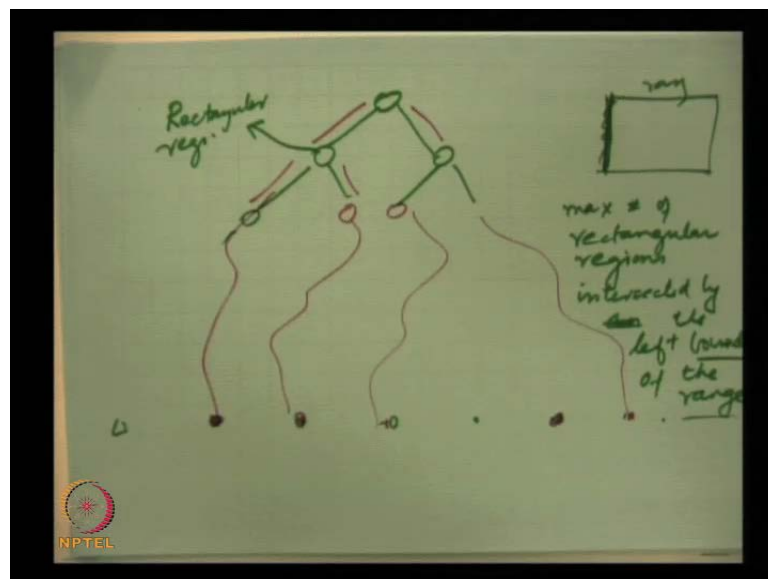 Rectangular
regi.
max # of
rectangular
regions
intersected by
the
left bound
of the
range
NPTEL